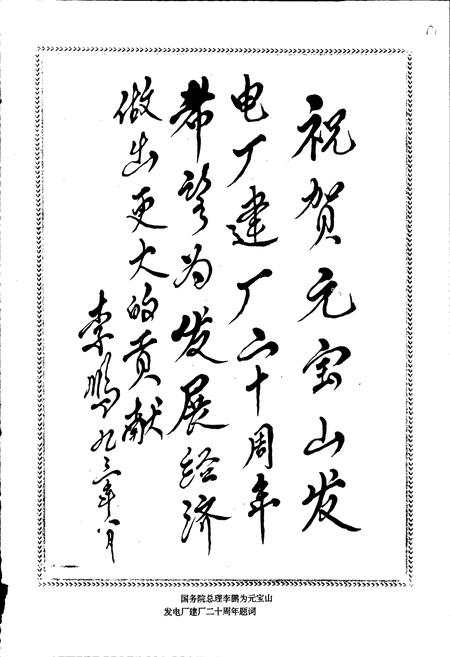 祝贺元宝山发
电厂建厂二十周年
希望为发展经济
做出更大的贡献
李鹏九三年八月
国务院总理李鹏为元宝山
发电厂建厂二十周年题词